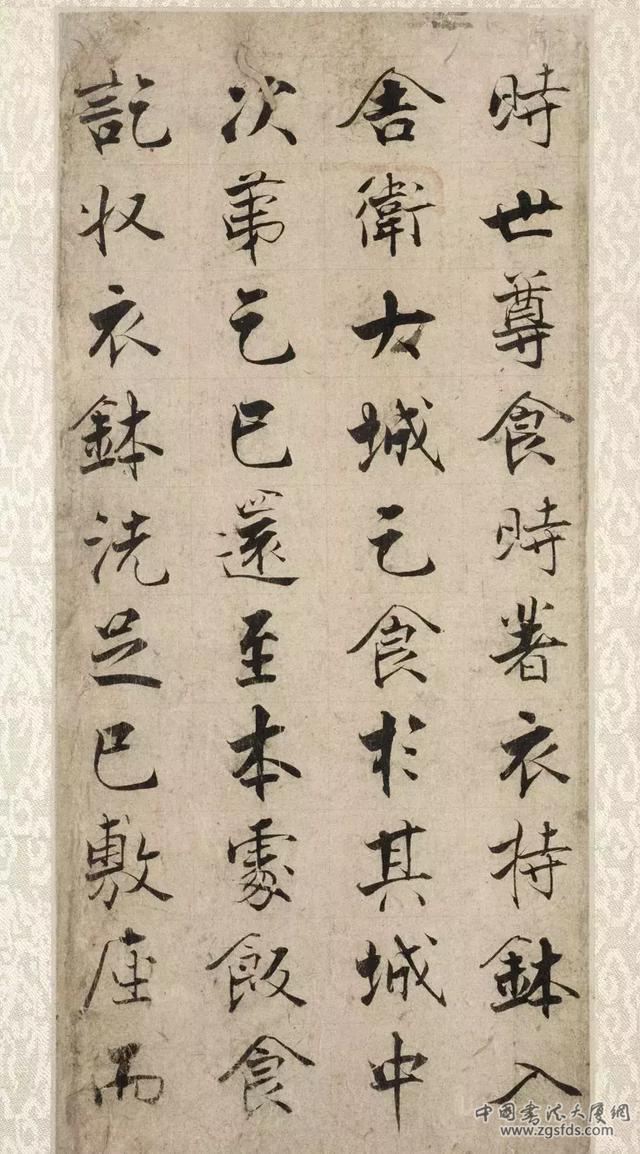 時世尊食時著衣持鉢入
舍衛大城乞食於其城中
次第乞已還至本處飯食
訖收衣鉢洗足已敷座而
中国书法大厦網
www.zgsfds.com